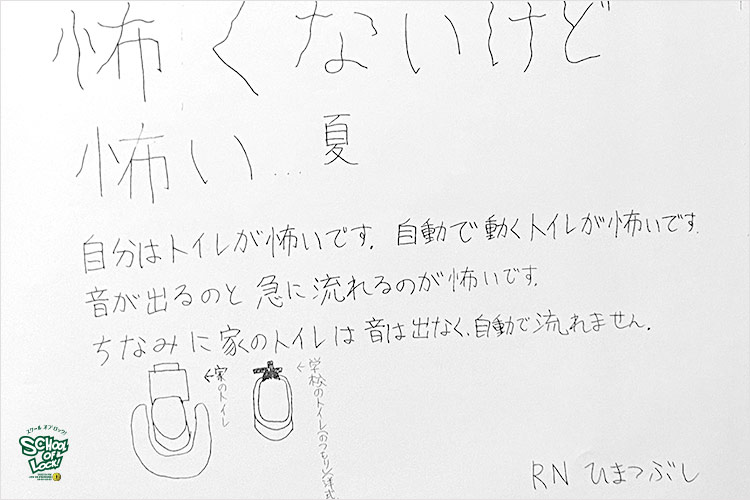 怖くないけど
怖い…夏
自分はトイレが怖いです。自動で動くトイレが怖いです。
音が出るのと急に流れるのが怖いです。
ちなみに家のトイレは音は出なく、自動で流れません。
←家のトイレ
←学校のトイレのつもり(洋式
スクール オブ ロック!
SCHOOL OF LOCK!
RN ひまつぶし